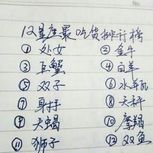 12星座最吃货排行榜
① 处女 ② 金牛
③ 巨蟹 ④ 白羊
⑤ 双子 ⑥ 水瓶
⑦ 射手 ⑧ 天秤
⑨ 天蝎 ⑩ 摩羯
⑪ 狮子 ⑫ 双鱼